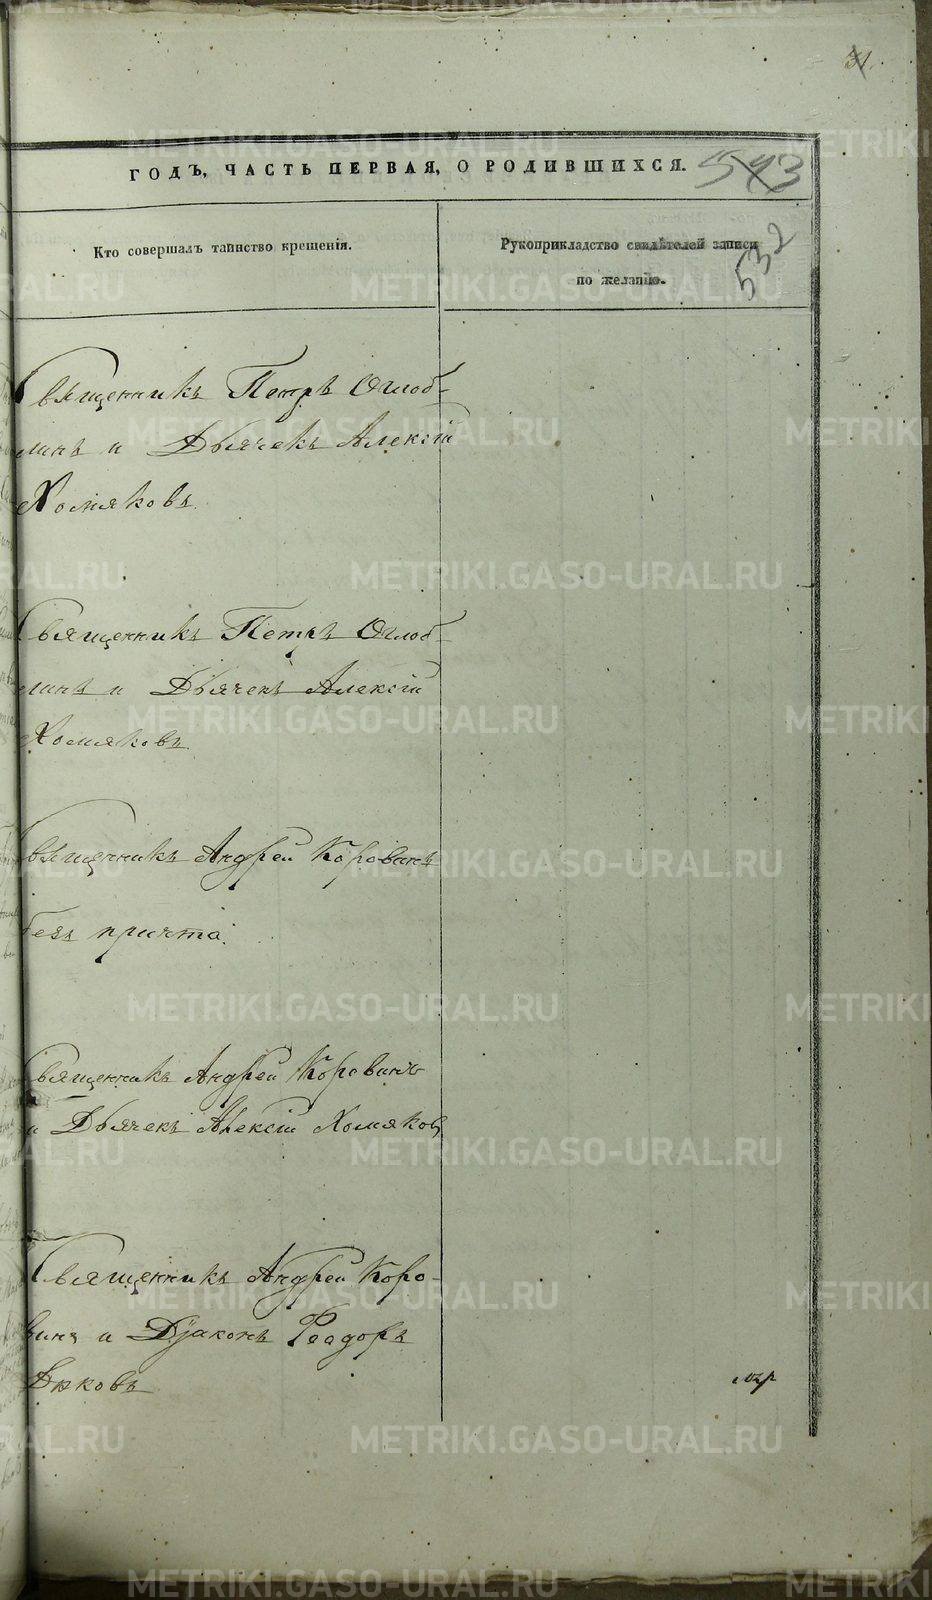 31.
ГОДЪ, ЧАСТЬ ПЕРВАЯ, О РОДИВШИХСЯ.
543
532
Кто совершалъ таинство крещенія.
Рукоприкладство свидѣтелей записи
по желанію.
Священникъ Петръ Оглоб-
линъ и Дьячекъ Алексій
Хомяковъ.
Священникъ Петръ Оглоб-
линъ и Дьячекъ Алексій
Хомяковъ.
Священникъ Андрей Коровинъ
безъ причта.
Священникъ Андрей Коровинъ
и Дьячекъ Алексій Хомяковъ
Священникъ Андрей Коро-
винъ и Діаконъ Феодоръ
METRIKI.GASO-URAL.RU